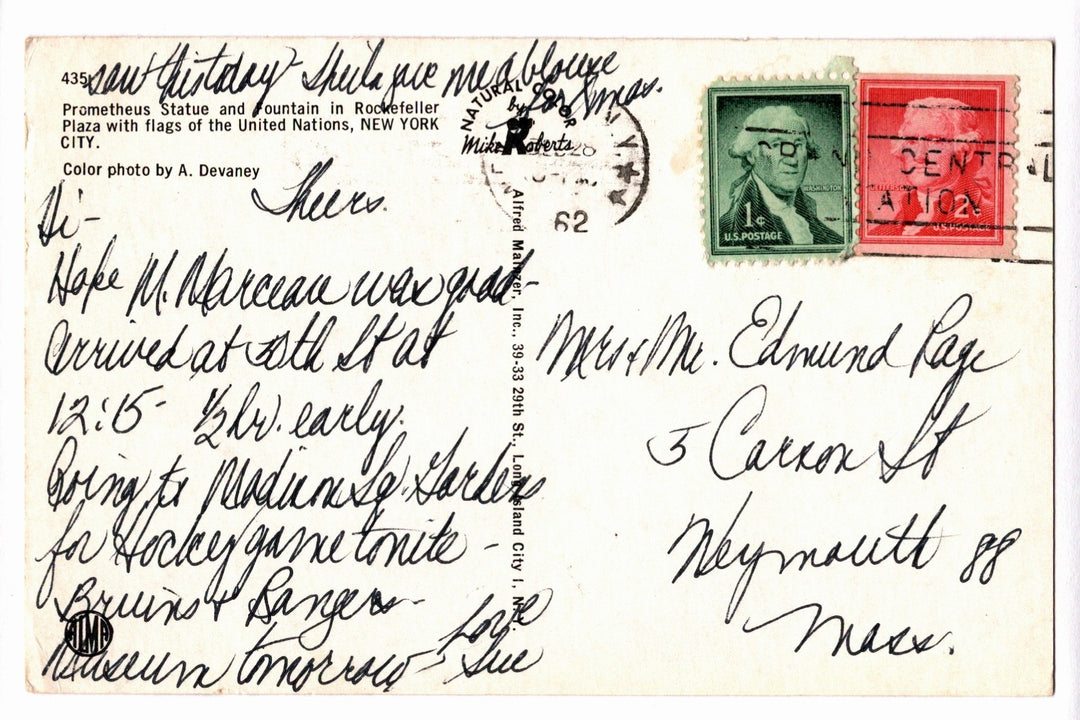 saw this today - Sheila gave me a blouse
for Xmas.
435
Prometheus Statue and Fountain in Rockefeller
Plaza with flags of the United Nations, NEW YORK
CITY.
Color photo by A. Devaney
NATURAL COLOR
by
Mike Roberts
Sheers.
Hi -
Hope M. Marceau was good -
Arrived at 50th St at
12:15 - 1/2 hr. early.
Going to Madison Sq. Gardens
for Hockey game tonite -
Bruins + Rangers -
Museum tomorrow -
Love
Sue
ALMA
Alfred Mainzer, Inc., 39-33 29th St., Long Island City 1, N.
N.Y.
28
62
GRAND CENTRAL
STATION
WASHINGTON
1¢
U.S. POSTAGE
JEFFERSON
2¢
Mrs + Mr. Edmund Page
5 Carson St
Weymouth 88
Mass.